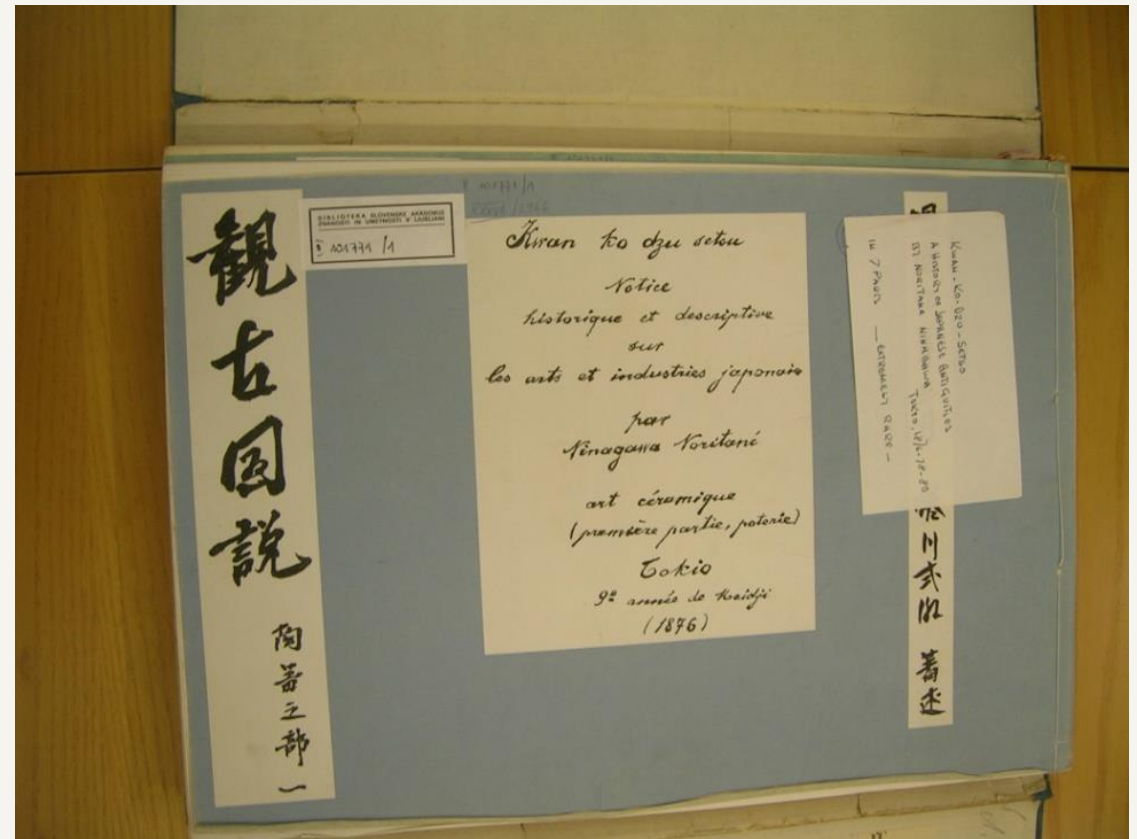 観古図説
陶器之部一
BIBLIOTEKA SLOVENSKE AKADEMIJE
ZNANOSTI IN UMETNOSTI V LJUBLJANI
II 101771/1
101771/1
Kwan ko dzu setsu
Notice
historique et descriptive
sur
les arts et industries japonais
par
Ninagawa Noritané
art céramique
(première partie, poterie)
Tokio
9e année de Meidji
(1876)
KWAN-KO-DZU-SETSO
A HISTORY OF JAPANESE ANTIQUITIES
BY NORITANA NINAGAWA TOKYO, 1876-78-80
IN 7 PARTS — EXTREMELY RARE —
川式胤 著述